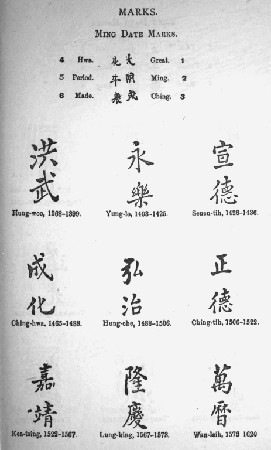 MARKS.
MING DATE MARKS.
4 Hwa. 化 大 Great. 1
5 Period. 年 明 Ming. 2
6 Made. 製 成 Ching. 3
洪武 永樂 宣德
Hung-woo, 1368-1399. Yung-lo, 1403-1425. Seuen-tih, 1426-1436.
成化 弘治 正德
Ching-hwa, 1465-1488. Hung-che, 1488-1506. Ching-tih, 1506-1522.
嘉靖 隆慶 萬曆
Kea-tsing, 1522-1567. Lung-king, 1567-1573. Wan-leih, 1573-1620